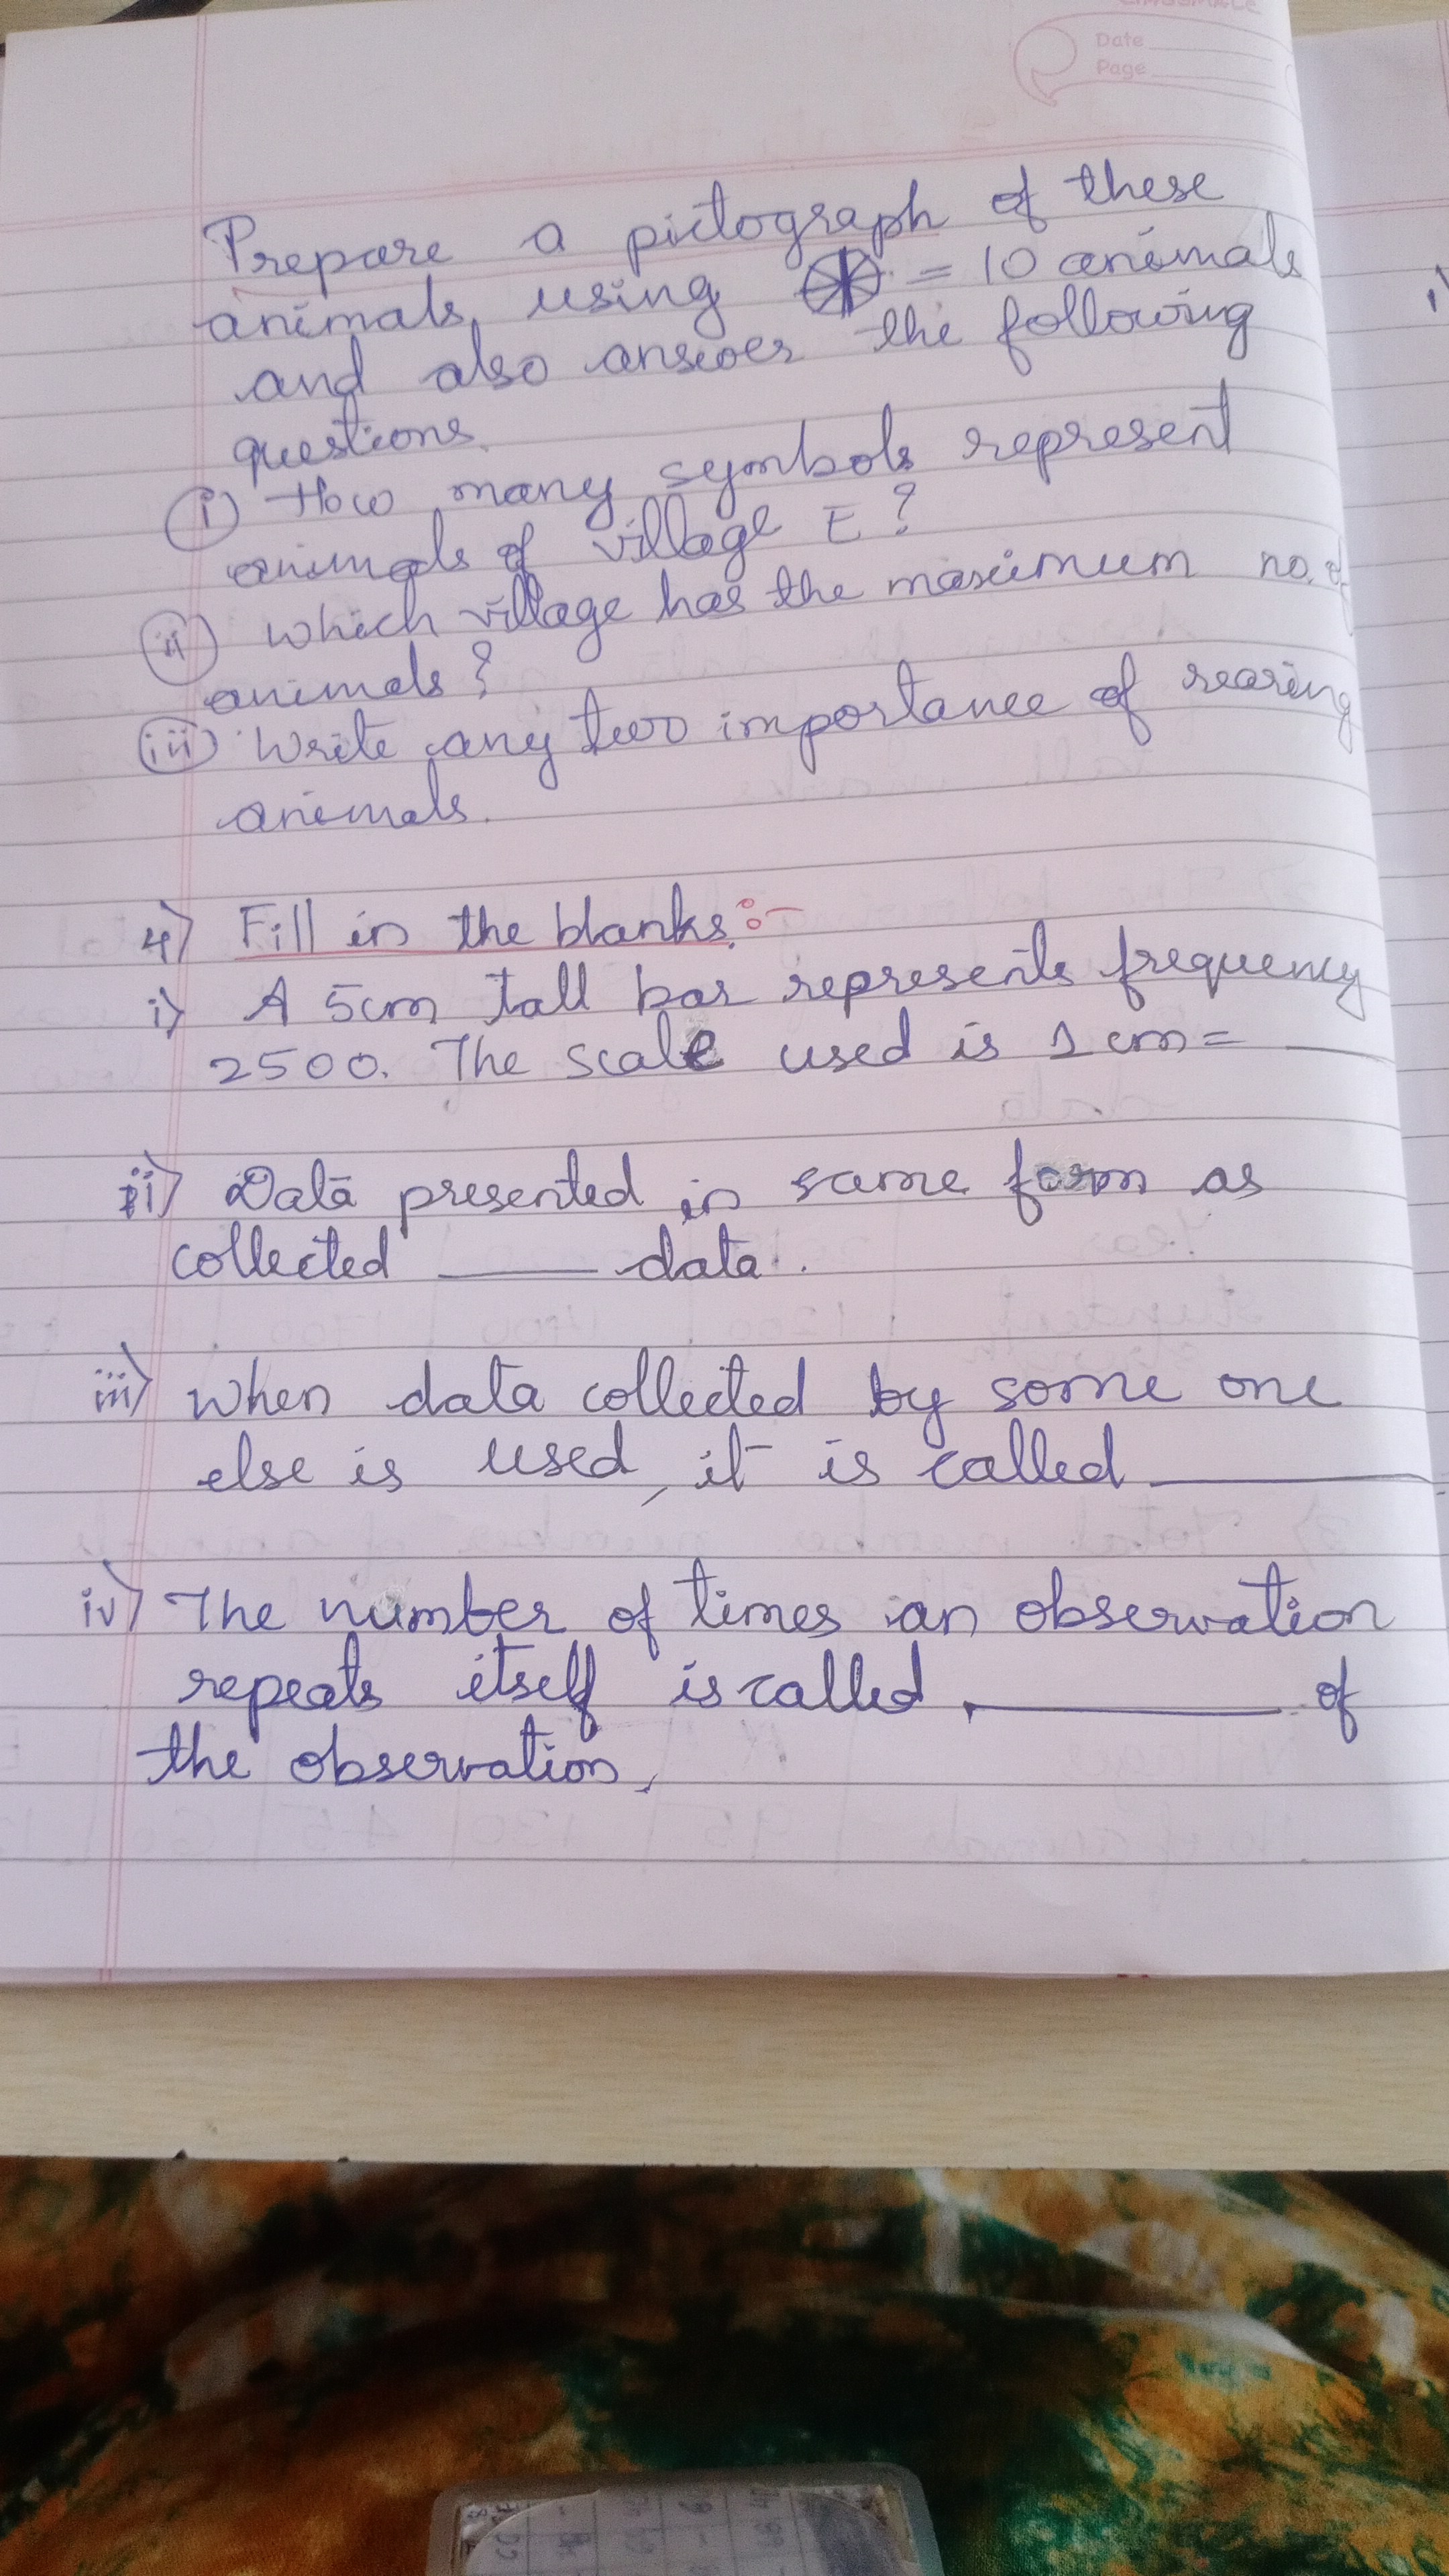 Date
Page
Prepare a pictograph of these
animals using = 10 animals
and also answer the following
questions.
i) How many symbols represent
animals of village E?
ii) which village has the maximum no. of
animals?
iii) Write any two importance of rearing
animals.
4) Fill in the blanks:-
i) A 5cm tall bar represents frequency
2500. The scale used is 1 cm = ____
ii) Data presented in same form as
collected ____ data.
iii) When data collected by some one
else is used, it is called ____
iv) The number of times an observation
repeats itself is called ____ of
the observation,